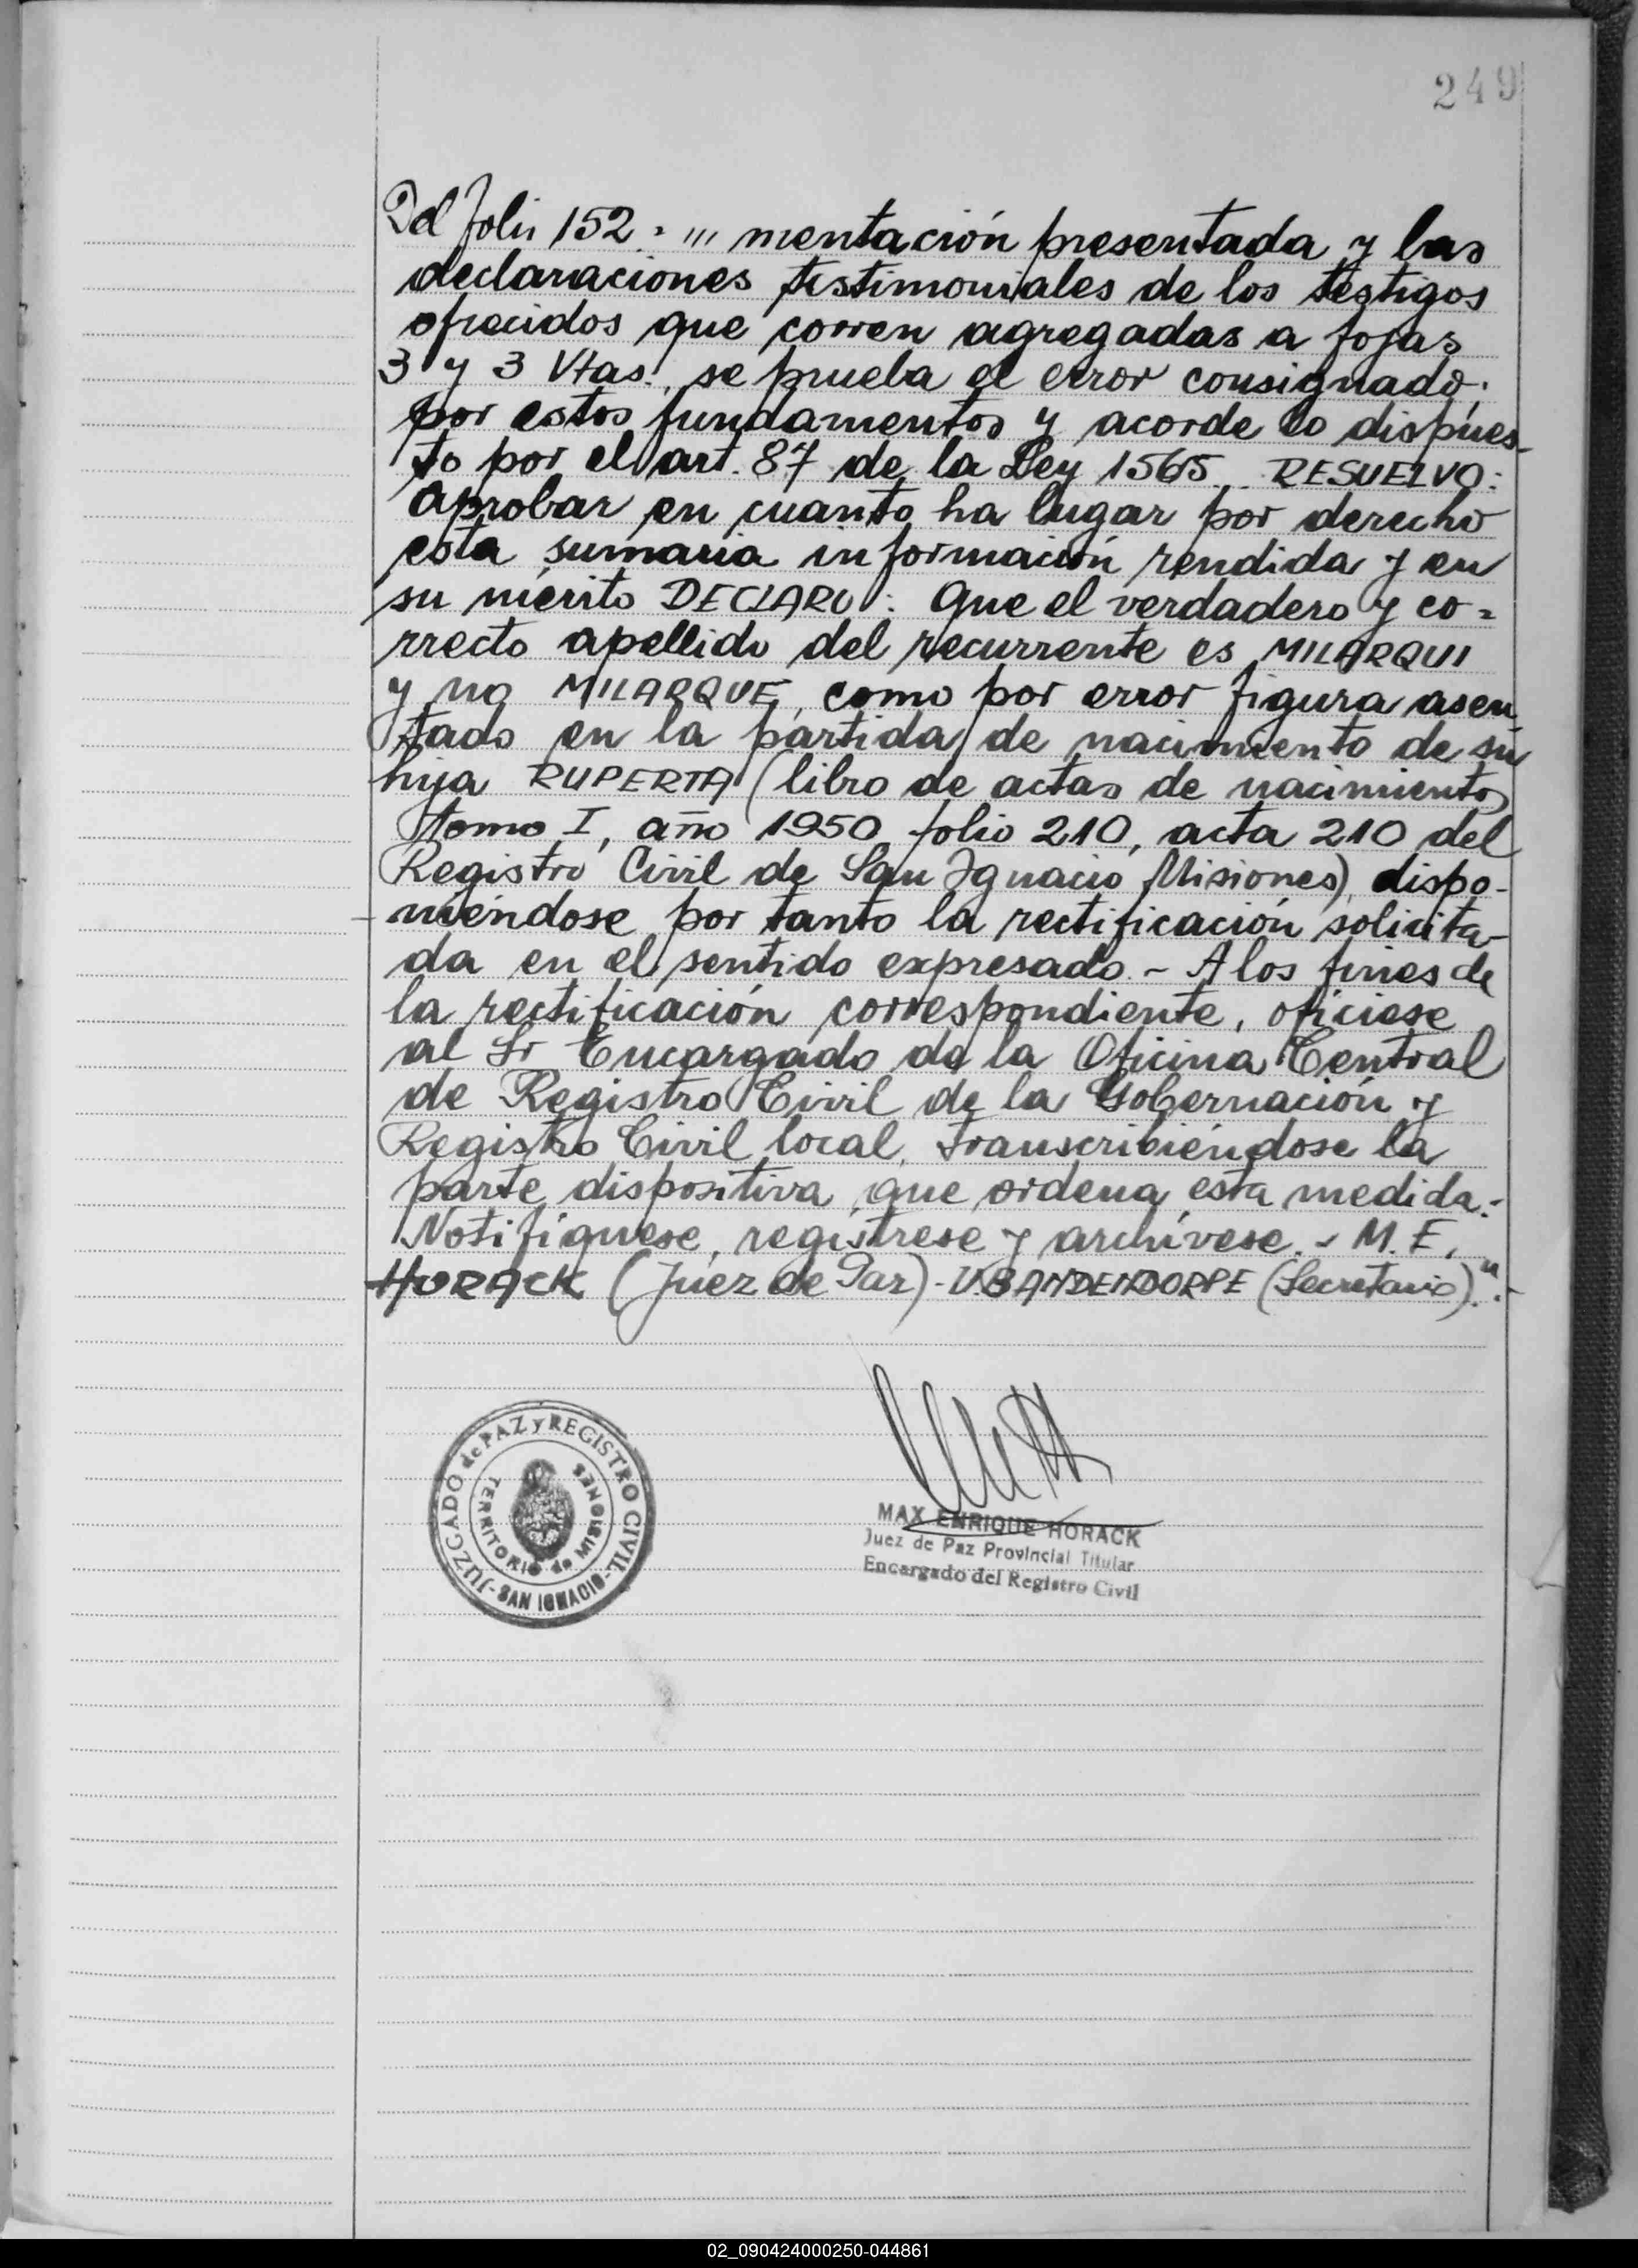 249
Del folio 152 = ,,, mentación presentada y las
declaraciones testimoniales de los testigos
ofrecidos que corren agregadas a fojas
3 y 3 Vtas., se prueba el error consignado;
por estos fundamentos y acorde lo dispues-
to por el art. 87 de la Ley 1565.. RESUELVO:
Aprobar en cuanto ha lugar por derecho
esta sumaria información rendida y en
su mérito DECLARO: Que el verdadero y co=
rrecto apellido del recurrente es MILARQUI
y no MILARQUE, como por error figura asen
tado en la partida de nacimiento de su
hija RUPERTA (libro de actas de nacimientos
tomo I, año 1950 folio 210, acta 210 del
Registro Civil de San Ignacio Misiones) dispo-
niéndose por tanto la rectificación solicita-
da en el sentido expresado.- A los fines de
la rectificación correspondiente, ofíciese
al Sr Encargado de la Oficina Central
de Registro Civil de la Gobernación y
Registro Civil local, transcribiéndose la
parte dispositiva que ordena esta medida.-
Notifíquese, regístrese y archívese.- M. E.
HORACK (Juez de Paz) - V.BANDENDORPE (Secretario)".-
JUZGADO de PAZ y REGISTRO CIVIL
TERRITORIO de MISIONES
- SAN IGNACIO -
MAX ENRIQUE HORACK
Juez de Paz Provincial Titular
Encargado del Registro Civil
02_090424000250-044861